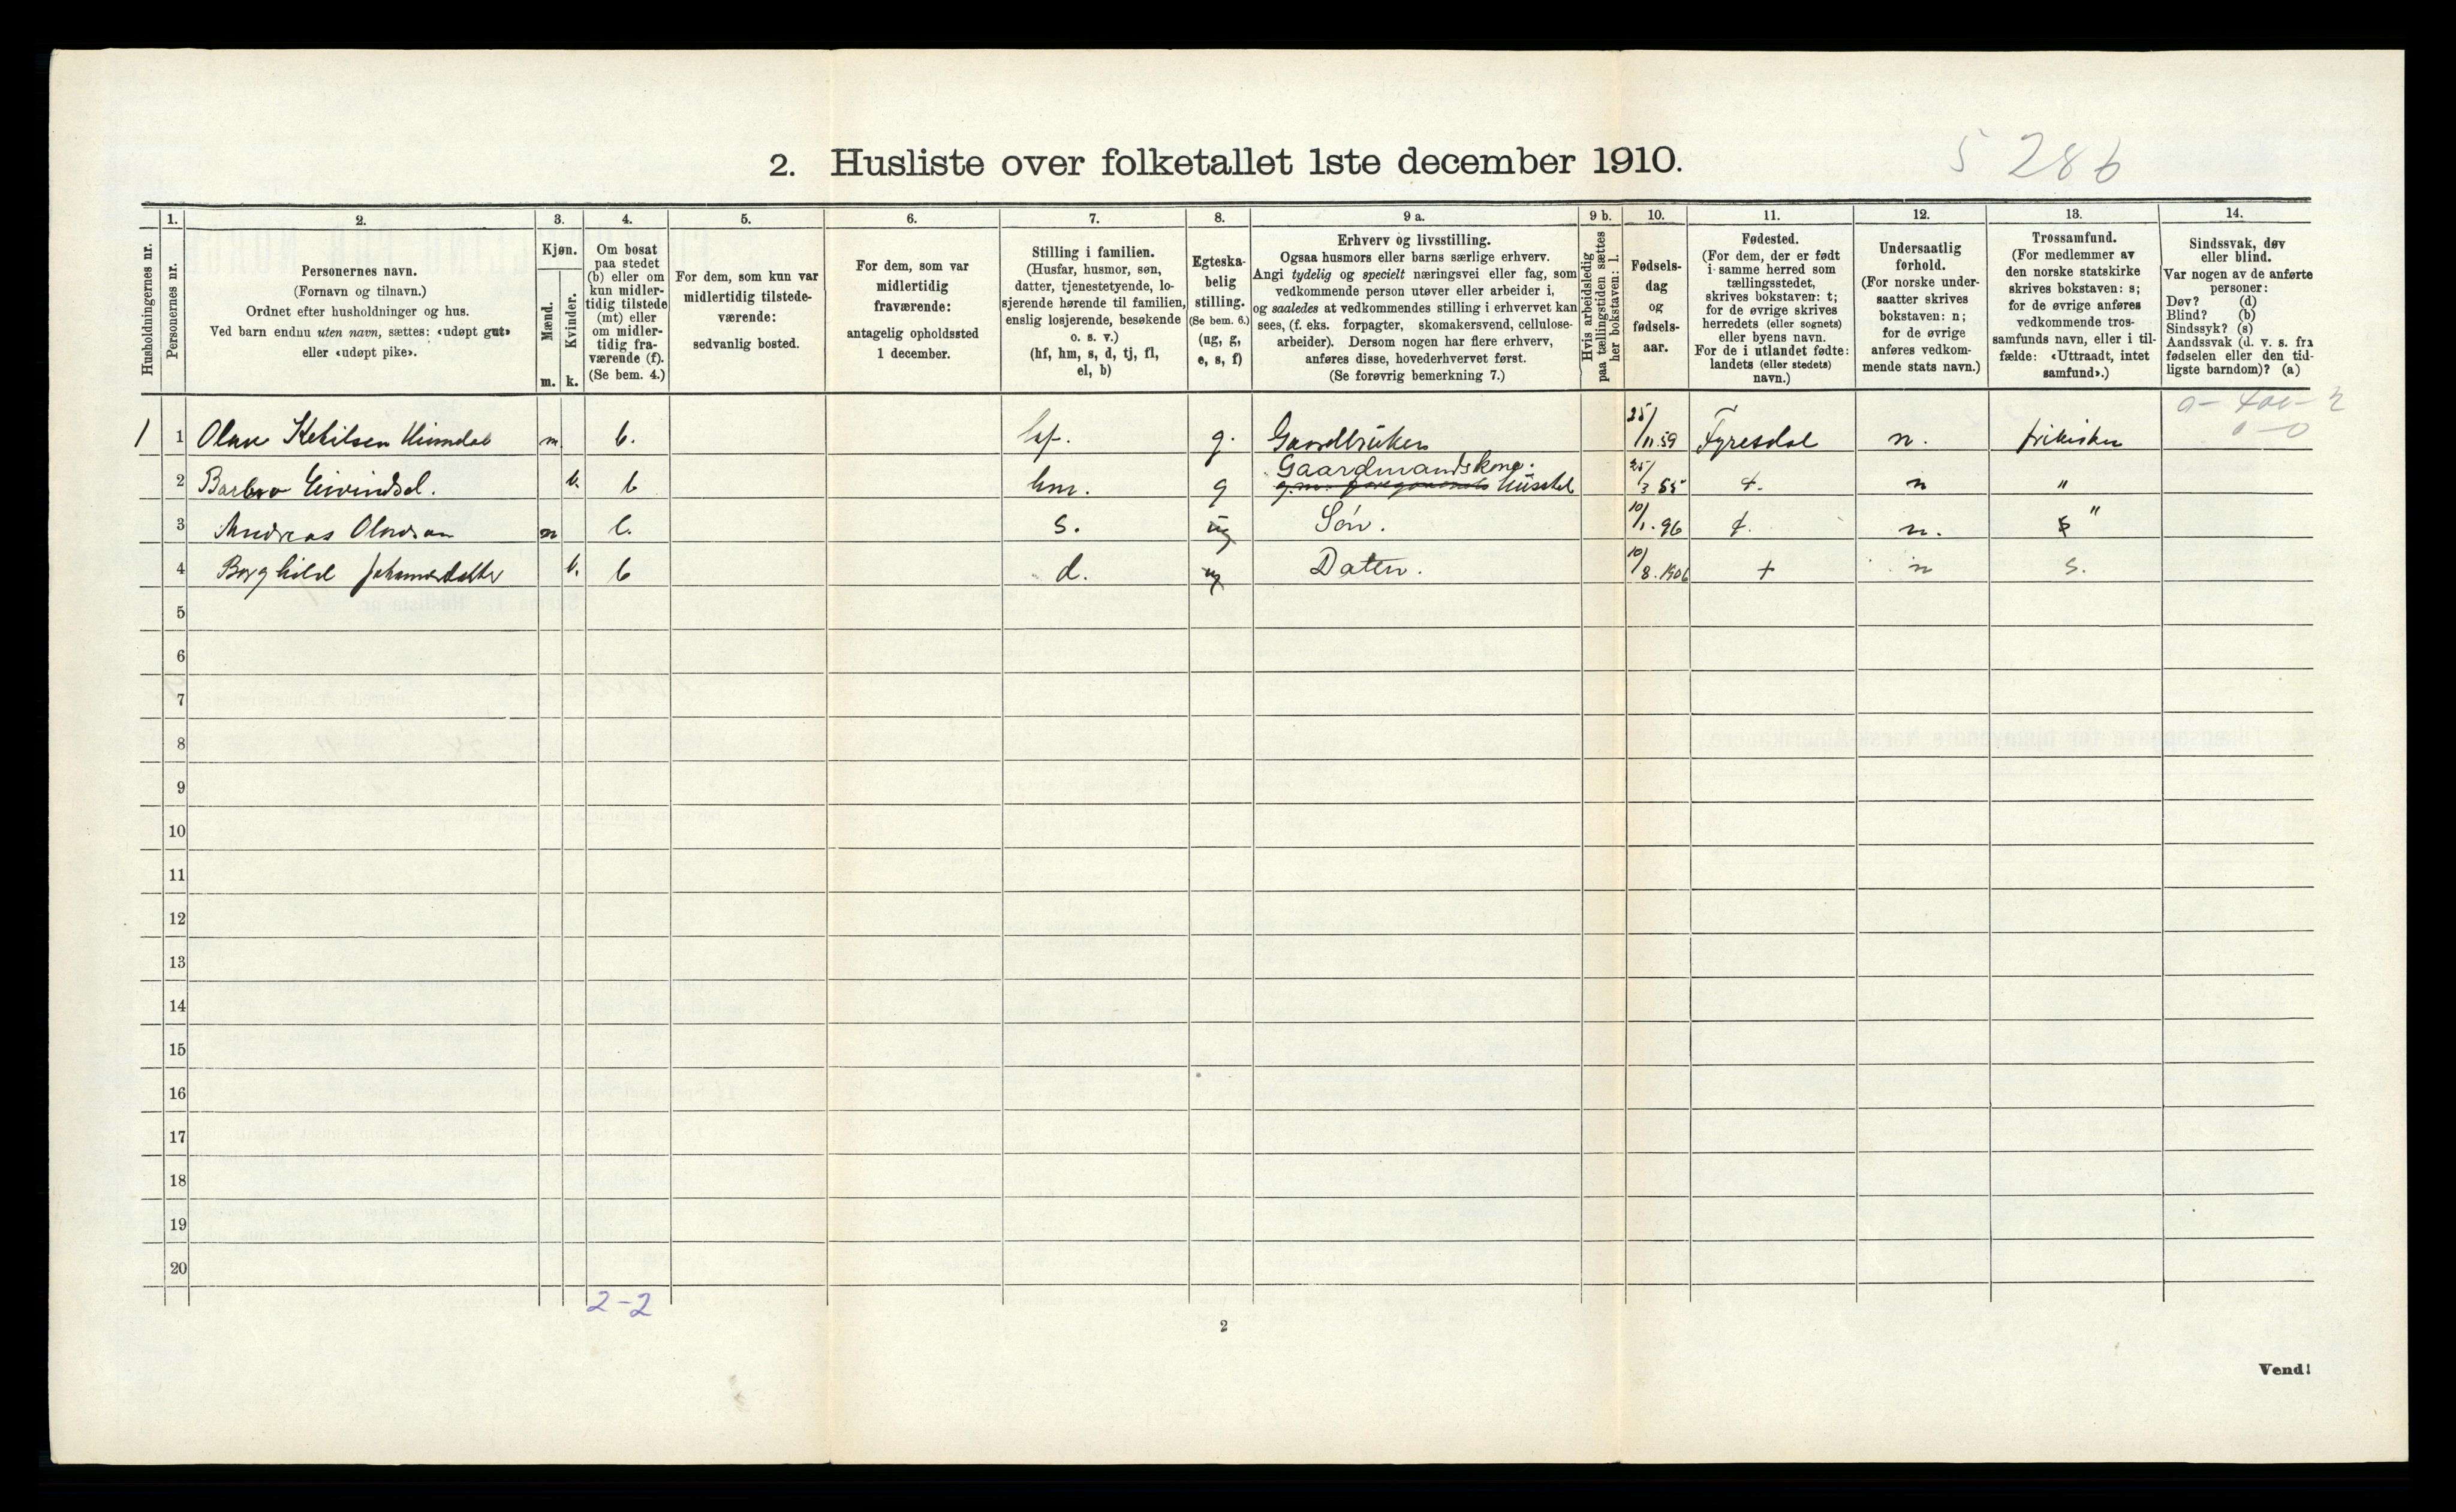 2. Husliste over folketallet 1ste december 1910.
5 286
Husholdningernes nr.
1. Personernes nr.
2. Personernes navn. (Fornavn og tilnavn.) Ordnet efter husholdninger og hus. Ved barn endnu uten navn, sættes: «udøpt gut» eller «udøpt pike».
3. Kjøn. Mænd. m. Kvinder. k.
4. Om bosat paa stedet (b) eller om kun midlertidig tilstede (mt) eller om midlertidig fraværende (f). (Se bem. 4.)
5. For dem, som kun var midlertidig tilstedeværende: sedvanlig bosted.
6. For dem, som var midlertidig fraværende: antagelig opholdssted 1 december.
7. Stilling i familien. (Husfar, husmor, søn, datter, tjenestetyende, losjerende hørende til familien, enslig losjerende, besøkende o. s. v.) (hf, hm, s, d, tj, fl, el, b)
8. Egteskabelig stilling. (Se bem. 6.) (ug, g, e, s, f)
9 a. Erhverv og livsstilling. Ogsaa husmors eller barns særlige erhverv. Angi tydelig og specielt næringsvei eller fag, som vedkommende person utøver eller arbeider i, og saaledes at vedkommendes stilling i erhvervet kan sees, (f. eks. forpagter, skomakersvend, cellulosearbeider). Dersom nogen har flere erhverv, anføres disse, hovederhvervet først. (Se forøvrig bemerkning 7.)
9 b. Hvis arbeidsledig paa tællingstiden sættes her bokstaven: l.
10. Fødselsdag og fødselsaar.
11. Fødested. (For dem, der er født i samme herred som tællingsstedet, skrives bokstaven: t; for de øvrige skrives herredets (eller sognets) eller byens navn. For de i utlandet fødte: landets (eller stedets) navn.)
12. Undersaatlig forhold. (For norske undersaatter skrives bokstaven: n; for de øvrige anføres vedkommende stats navn.)
13. Trossamfund. (For medlemmer av den norske statskirke skrives bokstaven: s; for de øvrige anføres vedkommende trossamfunds navn, eller i tilfælde: «Uttraadt, intet samfund».)
14. Sindssvak, døv eller blind. Var nogen av de anførte personer: Døv? (d) Blind? (b) Sindssyk? (s) Aandssvak (d. v. s. fra fødselen eller den tidligste barndom)? (a)
0-0
1 1 Olav Ketilsen m b. hf. g. Gaardbruker 25/11.59 Fyresdal n. frikirken
2 Barbro Eivindsd. k. b hm. g Gaardmandskone. Husstel 25/3 55 t. n "
3 Andreas Olavson m b. s. ug Søn. 10/1.96 t. n. "
4 Borghild k. b d. ug Dater. 10/8.1906 t n s.
5
6
7
8
9
10
11
12
13
14
15
16
17
18
19
20
2-2
2
Vend!